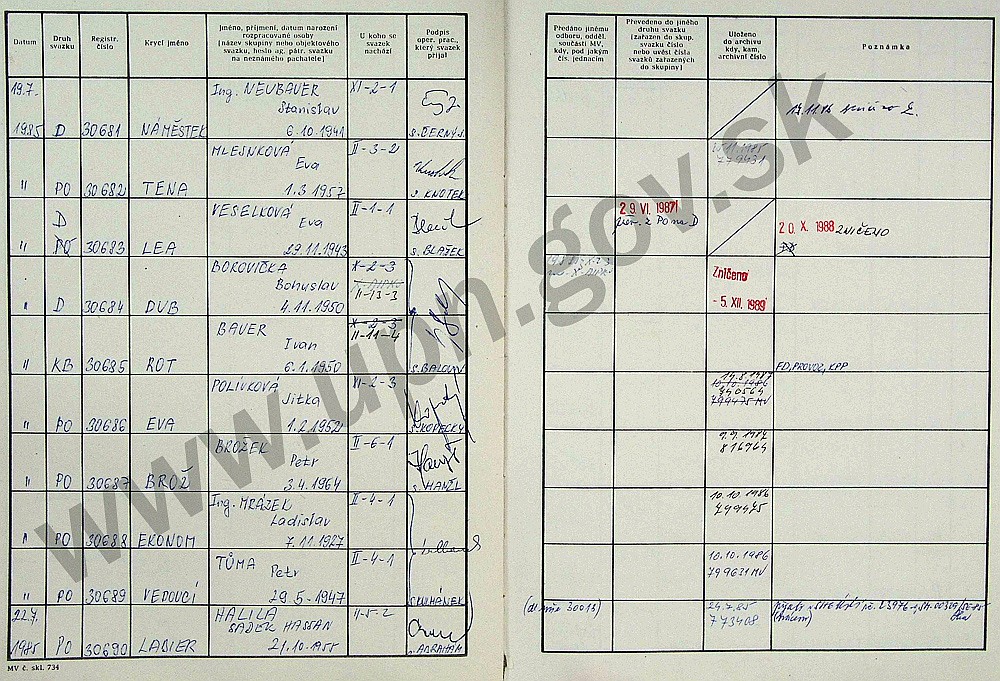 Datum
Druh svazku
Registr. číslo
Krycí jméno
Jméno, příjmení, datum narození
rozpracované osoby
[název skupiny nebo objektového
svazku, heslo ag. pátr. svazku
na neznámého pachatele]
U koho se
svazek
nachází
Podpis
oper. prac.,
který svazek
přijal
Předáno jinému
odboru, odděl.
součásti MV,
kdy, pod jakým
čís. jednacím
Převedeno do jiného
druhu svazku
[zařazen do skup.
svazku číslo
nebo uvést čísla
svazků zařazených
do skupiny]
Uloženo
do archivu
kdy, kam,
archivní číslo
Poznámka
19.7. Ing. NEUBAUER XI-2-1
Stanislav
1985 D 30681 NÁMĚSTEK 6.10.1941 s. ČERNÝ S.
MLESNKOVÁ II-3-2
Eva
" PO 30682 TENA 1.3.1957 s. KNOTEK
779431
D VESELKOVÁ II-1-1 29. VI. 1987 20. X. 1988 ZNIČENO
Eva přev. z PO na D
" PO 30683 LEA 29.11.1943 s. BLAŽEK
BOROVIČKA X-2-3 Zničeno
Bohuslav II-13-3 -5. XII. 1989
" D 30684 DUB 4.11.1950
BAUER X-2-3
Ivan II-11-4
" KB 30685 ROT 6.1.1950 s. BALOUN FD, PROVOZ, KPP
POLÍVKOVÁ XI-2-3 14.8.1987
Jitka 10.10.1986
740564
" PO 30686 EVA 1.2.1952 s. KOPECKÝ 799475 MV
BROŽEK II-6-1 9.9.1987
Petr 816964
" PO 30687 BROŽ 3.4.1964 s. HANZL
Ing. MRÁZEK II-4-1 10.10.1986
Ladislav 799475
" PO 30688 EKONOM 7.11.1927
TŮMA II-4-1 10.10.1986
Petr 799631 MV
" PO 30689 VEDOUCÍ 29.5.1947 s. KUHÁNEK
22.7. HALILA II-5-2 24.7.85
SADEK HASSAN 773408
1985 PO 30690 LABIER 21.10.1955 s. ABRAHAM
MV č. skl. 734
www.upn.gov.sk